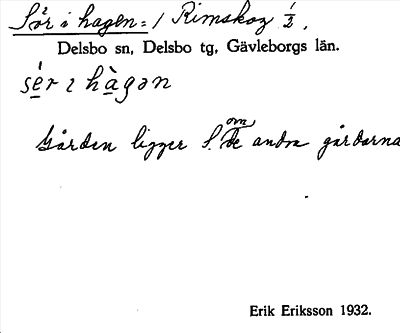 Sör i hagen = / Rimskog 1/2.
Delsbo sn, Delsbo tg, Gävleborgs län.
sèr i hàgən
Gården ligger S. om de andra gårdarna
Erik Eriksson 1932.